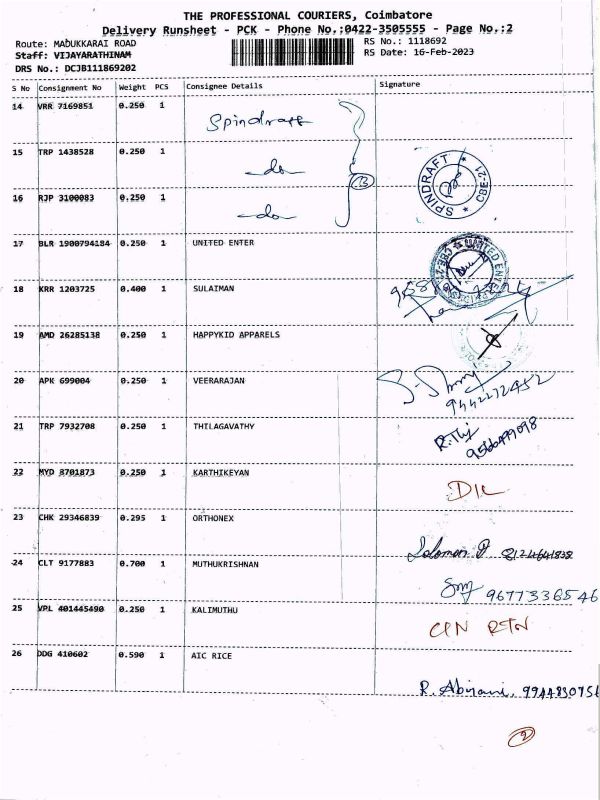 THE PROFESSIONAL COURIERS, Coimbatore
Delivery Runsheet - PCK - Phone No.:0422-3505555 - Page No.:2
Route: MADUKKARAI ROAD
RS No.: 1118692
Staff: VIJAYARATHINAM
RS Date: 16-Feb-2023
DRS No.: DCJB111869202
S No Consignment No Weight PCS Consignee Details Signature
14 VRR 7169851 0.250 1 Spindraft
15 TRP 1438528 0.250 1 -do- SPINDRAFT CBE-21
16 RJP 3100083 0.250 1 -do-
17 BLR 1900794184 0.250 1 UNITED ENTER
18 KRR 1203725 0.400 1 SULAIMAN
19 AMD 26285138 0.250 1 HAPPYKID APPARELS
20 APK 699004 0.250 1 VEERARAJAN
9442272452
21 TRP 7932708 0.250 1 THILAGAVATHY R.Thj
9566499098
22 MYD 8701873 0.250 1 KARTHIKEYAN D/L
23 CHK 29346839 0.295 1 ORTHONEX
Solomon P
24 CLT 9177883 0.700 1 MUTHUKRISHNAN
9677336546
25 VPL 401445490 0.250 1 KALIMUTHU C/N RTN
26 DDG 410602 0.590 1 AIC RICE
R. Abirami, 9944850751
2